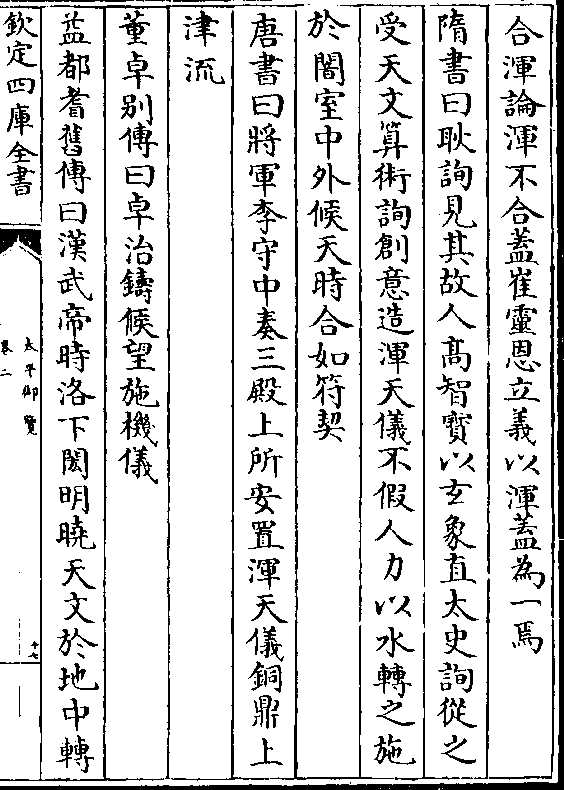 合渾論渾不合蓋崔靈恩立義以渾蓋為一焉
隋書曰耿詢見其故人髙智寳以玄象直太史詢從之
受天文算術詢創意造渾天儀不假人力以水轉之施
於闇室中外候天時合如符契
唐書曰將軍李守中奏三殿上所安置渾天儀銅鼎上
津流
董卓别傳曰卓治鑄候望施機儀
益都耆舊傳曰漢武帝時洛下閎明曉天文於地中轉
欽定四庫全書
太平御覽
卷二
十七